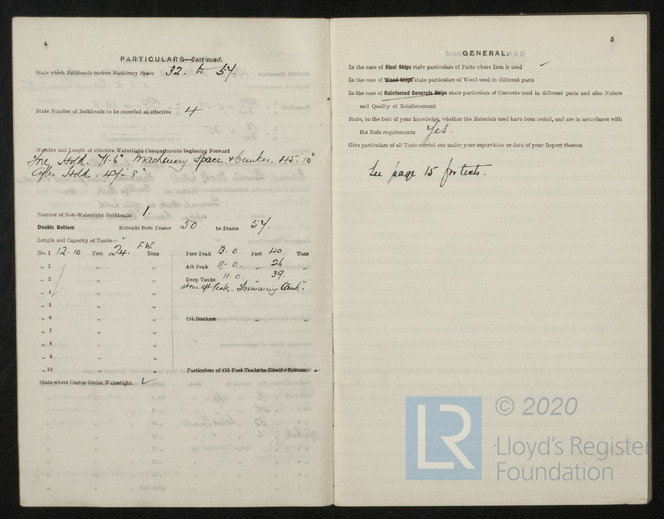 4
PARTICULARS—Continued.
State which Bulkheads enclose Machinery Space 32. to 57.
State Number of Bulkheads to be recorded as effective 4
Number and Length of effective Watertight Compartments beginning Forward
Fore Hold. 71-6" Machinery Space & Bunker. 45-10"
After Hold. 8"
Number of Non-Watertight Bulkheads 1.
Double Bottom Extends from Frame 50 to Frame 57.
Length and Capacity of Tanks—
No. 1 12.10 Feet 24. F.W. Tons
" 2 " "
" 3 " "
" 4 " "
" 5 " "
" 6 " "
" 7 " "
" 8 " "
" 9 " "
" 10 " "
Fore Peak 13.0 Feet 40. Tons
Aft Peak 11-0. " 26 "
Deep Tanks 11.0. 39.
aft Peak. "Trimming Tank".
Oil Bunkers " "
Particulars of Oil Fuel Tanks in Double Bottom
State where Centre Girder Watertight. ✓
5
GENERAL.
In the case of Steel Ships state particulars of Parts where Iron is used
In the case of Wood Ships state particulars of Wood used in different parts
In the case of Reinforced Concrete Ships state particulars of Concrete used in different parts and also Nature
and Quality of Reinforcement
State, to the best of your knowledge, whether the Materials used have been tested, and are in accordance with
the Rule requirements Yes.
Give particulars of all Tests carried out under your supervision to date of your Report thereon
See page 15 for tests.
LR
© 2020
Lloyd's Register
Foundation